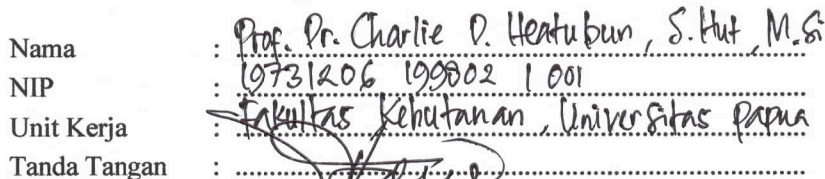 Nama : Prof. Dr. Charlie D. Heatubun, S.Hut, M.Si
NIP : 19731206 199802 1 001
Unit Kerja : Fakultas Kehutanan, Universitas Papua
Tanda Tangan :